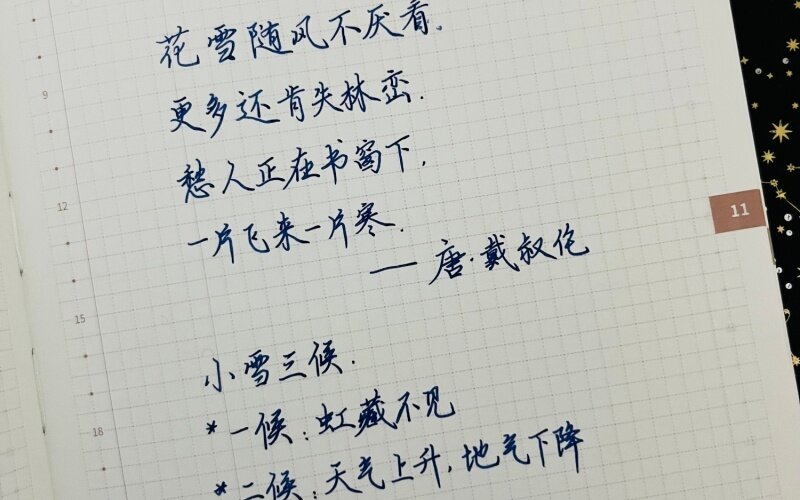 花雪随风不厌看.
更多还肯失林峦.
愁人正在书窗下,
一片飞来一片寒.
—— 唐·戴叔伦
小雪三候.
*一候:虹藏不见
*二候:天气上升,地气下降
9
12
15
18
11